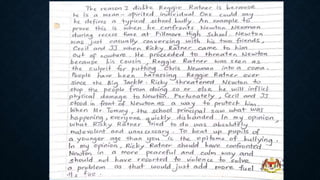 The reason I dislike Reggie Ratner is because
he is a mean-spirited individual. One could say
he defines a typical school bully. An example to
prove this is when he confronts Newton Newman
during recess time at Pillmore High School. Newton
was just casually conversing with his two friends,
Cecil and JJ when Ricky Ratner came to him
out of nowhere. He proceeded to threaten Newton
because his cousin, Reggie Ratner was seen as
the culprit for putting Chris Newman into a coma.
People have been harassing Reggie Ratner ever
since the Big Tackle. Ricky threatened Newton to
stop the people from doing so or else he will inflict
physical damage to Newton. Fortunately, Cecil and JJ
stood in front of Newton as a way to protect him.
When Mr Tomury, the school principal saw what was
happening, everyone quickly disbanded. In my opinion,
what Ricky Ratner tried to do was absolutely
malevolent and unnecessary. To beat up pupils of
a younger age than you is the epitome of bullying.
In my opinion, Ricky Ratner should have confronted
Newton in a more peaceful and calm way and
should not have resorted to violence to solve
a problem as that would just add more fuel